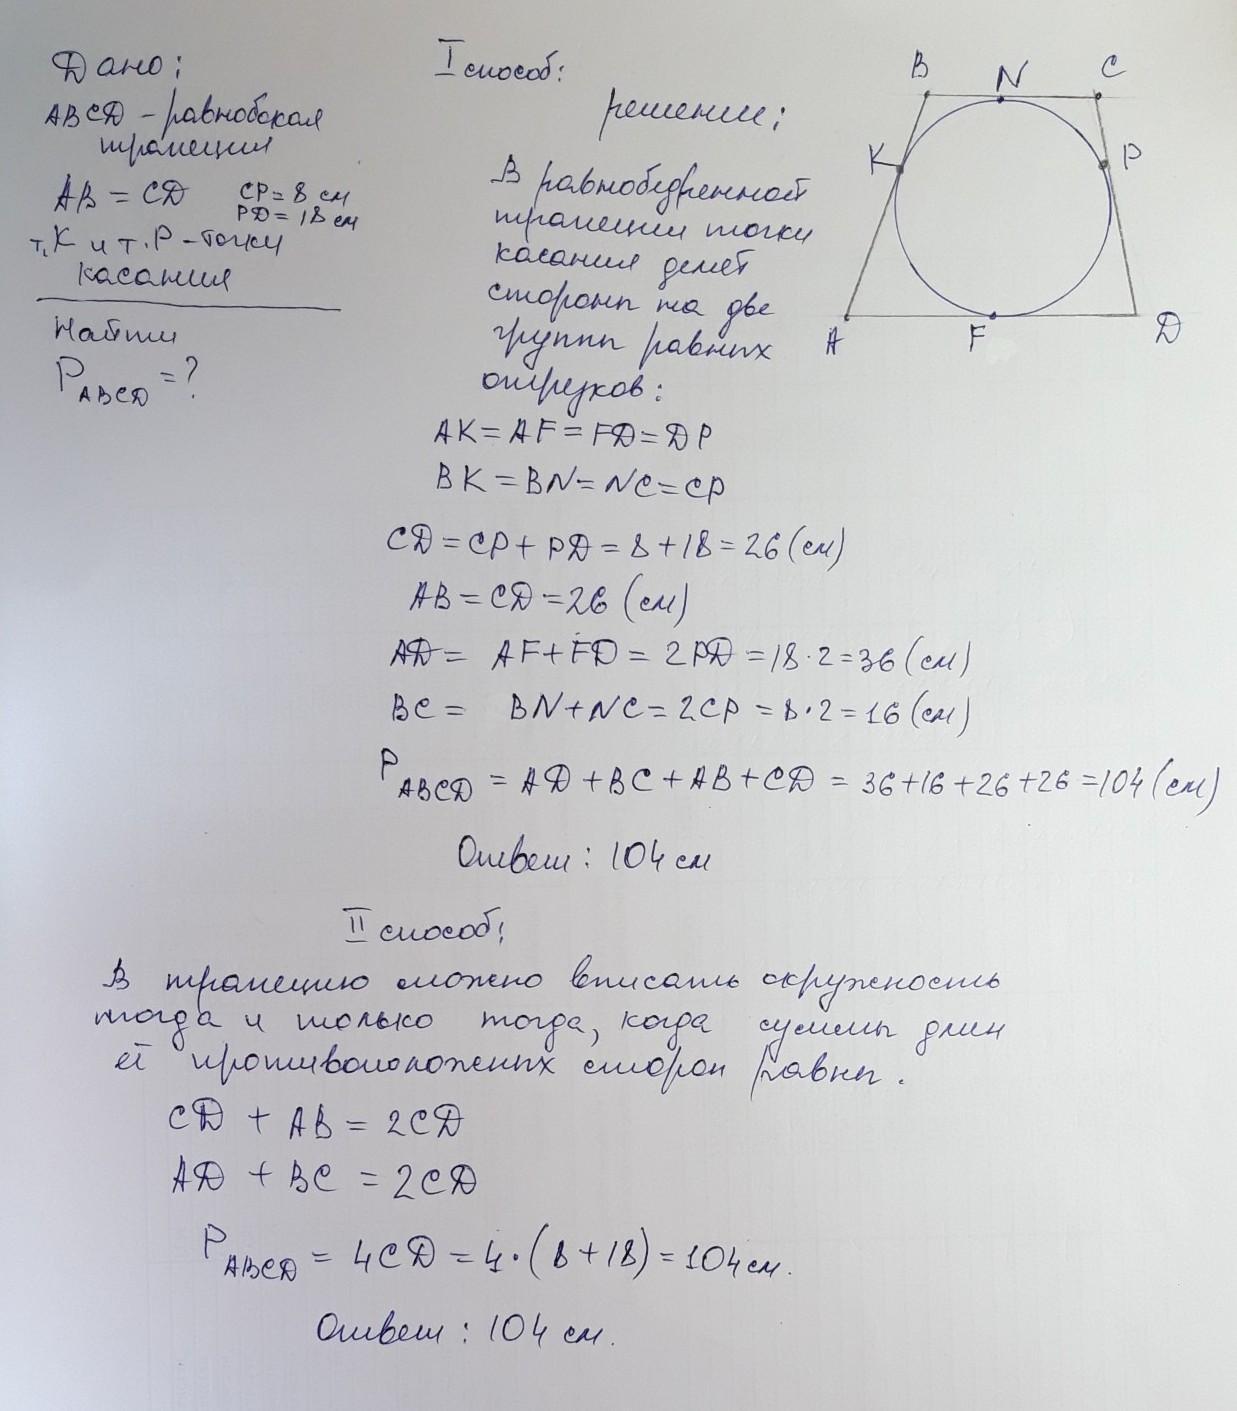 Дано:
ABCD - равнобокая
трапеция
AB = CD CP = 8 см
PD = 18 см
т. K и т. P - точки
касания
Найти
P ABCD = ?
I способ:
решение:
B N C
K P
A F D
В равнобедренной
трапеции точки
касания делят
стороны на две
группы равных
отрезков:
AK = AF = FD = DP
BK = BN = NC = CP
CD = CP + PD = 8 + 18 = 26 (см)
AB = CD = 26 (см)
AD = AF + FD = 2PD = 18 · 2 = 36 (см)
BC = BN + NC = 2CP = 8 · 2 = 16 (см)
P ABCD = AD + BC + AB + CD = 36 + 16 + 26 + 26 = 104 (см)
Ответ: 104 см
II способ:
В трапецию можно вписать окружность
тогда и только тогда, когда суммы длин
её противоположных сторон равны.
CD + AB = 2CD
AD + BC = 2CD
P ABCD = 4CD = 4 · (8 + 18) = 104 см.
Ответ: 104 см.